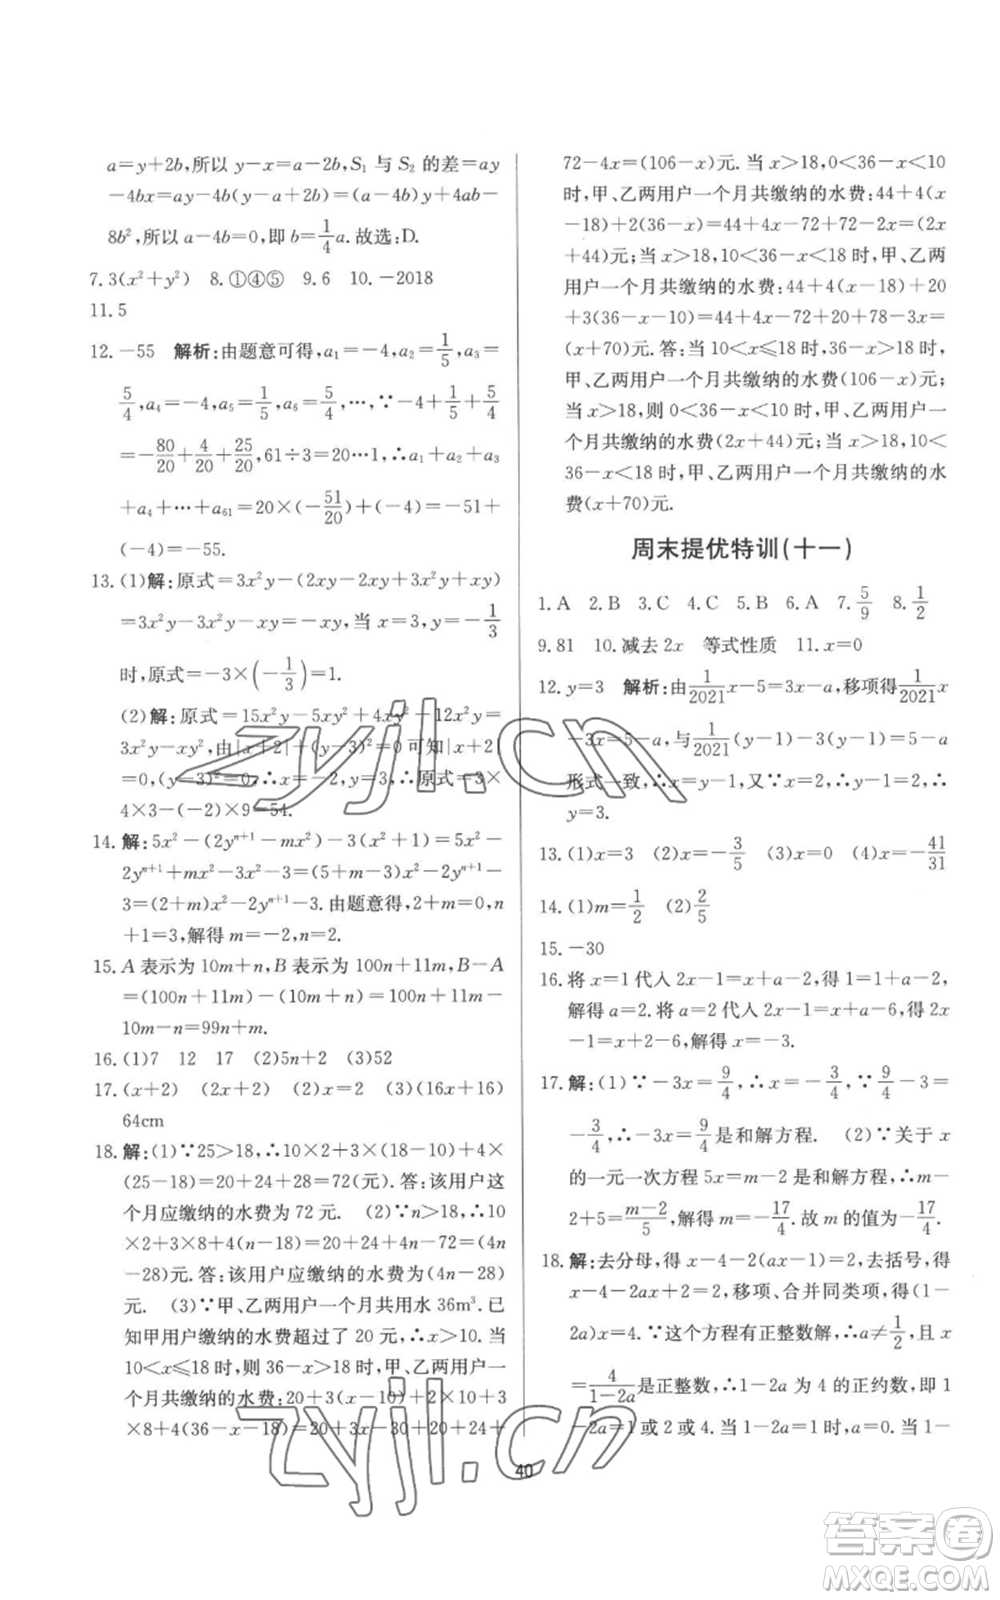 a=y+2b,所以 y-x=a-2b,S₁ 与 S₂ 的差=ay
-4bx=ay-4b(y-a+2b)=(a-4b)y+4ab-
8b²,所以 a-4b=0,即 b=1/4a.故选:D.
7.3(x²+y²) 8.①④⑤ 9.6 10.-2018
11.5
12.-55 解析:由题意可得,a₁=-4,a₂=1/5,a₃=
5/4,a₄=-4,a₅=1/5,a₆=5/4,…,∵-4+1/5+5/4
=-80/20+4/20+25/20,61÷3=20…1,∴a₁+a₂+a₃
+a₄+…+a₆₁=20×(-51/20)+(-4)=-51+
(-4)=-55.
13.(1)解:原式=3x²y-(2xy-2xy+x²y+xy)
=3x²y-3x²y-xy=-xy,当 x=3,y=-1/3
时,原式=-3×(-1/3)=1.
(2)解:原式=15x²y-5xy²+4xy²-12x²y=
3x²y-xy²,由|x+2|+(y-3)²=0可知|x+2|
=0,(y-3)²=0,∴x=-2,y=3,∴原式=3×
4×3-(-2)×9=54.
14.解:5x²-(2yⁿ⁺¹-mx²)-3(x²+1)=5x²-
2yⁿ⁺¹+mx²-3x²-3=(5+m-3)x²-2yⁿ⁺¹
-3=(2+m)x²-2yⁿ⁺¹-3.由题意得,2+m=0,n
+1=3,解得 m=-2,n=2.
15.A 表示为 10m+n,B 表示为 100n+11m,B-A
=(100n+11m)-(10m+n)=100n+11m-
10m-n=99n+m.
16.(1)7 12 17 (2)5n+2 (3)52
17.(x+2) (2x+2) (2)x=2 (3)(16x+16)
64cm
18.解:(1)∵25>18,∴10×2+3×(18-10)+4×
(25-18)=20+24+28=72(元).答:该用户这
个月应缴纳的水费为 72 元. (2)∵n>18,∴10
×2+3×8+4(n-18)=20+24+4n-72=(4n
-28)元.答:该用户应缴纳的水费为(4n-28)
元. (3)∵甲、乙两用户一个月共用水 36m³.已
知甲用户缴纳的水费超过了 20 元,∴x>10.当
10<x≤18 时,则 36-x≥18 时,甲、乙两用户一
个月共缴纳的水费:20+3(x-10)+20+2×10+3
×8+4(36-x-18)=20+3x-30+20+24+
72-4x=(106-x)元.当 x>18,0<36-x<10
时,甲、乙两用户一个月共缴纳的水费:44+4(x
-18)+2(36-x)=44+4x-72+72-2x=(2x
+44)元;当 x>18,10<36-x<18 时,甲、乙两用
户一个月共缴纳的水费:44+4(x-18)+20
+3(36-x-10)=44+4x-72+20+78-3x=
(x+70)元.答:当 10<x≤18 时,36-x≥18 时,
甲、乙两用户一个月共缴纳的水费(106-x)元;
当 x>18,则 0<36-x<10 时,甲、乙两用户一
个月共缴纳的水费(2x+44)元;当 x>18,10<
36-x<18 时,甲、乙两用户一个月共缴纳的水
费(x+70)元.
周末提优特训(十一)
1.A 2.B 3.C 4.C 5.B 6.A 7.5/9 8.1/2
9.81 10.减去 2x 等式性质 11.x=0
12.y=3 解析:由1/2021x-5=3x-a,移项得1/2021x
-3x=5-a,与1/2021(y-1)-3(y-1)=5-a
形式一致,∴x=y-1,又∵x=2,∴y-1=2,∴
y=3.
13.(1)x=3 (2)x=-3/5 (3)x=0 (4)x=-41/31
14.(1)m=1/2 (2)2/5
15.-30
16.将 x=1 代入 2x-1=x+a-2,得 1=1+a-2,
解得 a=2.将 a=2 代入 2x-1=x+a-6,得 2x
-1=x+2-6,解得 x=-3.
17.解:(1)∵-3x=9/4,∴x=-3/4,∵9/4-3=
-3/4,∴-3x=9/4是和解方程. (2)∵关于 x
的一元一次方程 5x=m-2 是和解方程,∴m-
2+5=(m-2)/5,解得 m=-17/4.故 m 的值为-17/4.
18.解:去分母,得 x-4-2(ax-1)=2,去括号,得
x-4-2ax+2=2,移项、合并同类项,得(1-
2a)x=4.∵这个方程有正整数解,∴a≠1/2,且 x
=4/(1-2a)是正整数,∴1-2a 为 4 的正约数,即 1
-2a=1 或 2 或 4.当 1-2a=1 时,a=0.当 1-
40
zyjl.cn
zyjl.cn
答案圈
MXQE.COM